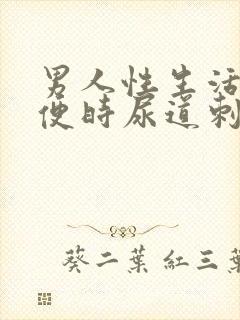 男人性生活
便时尿道刺
葵二葉紅三葉